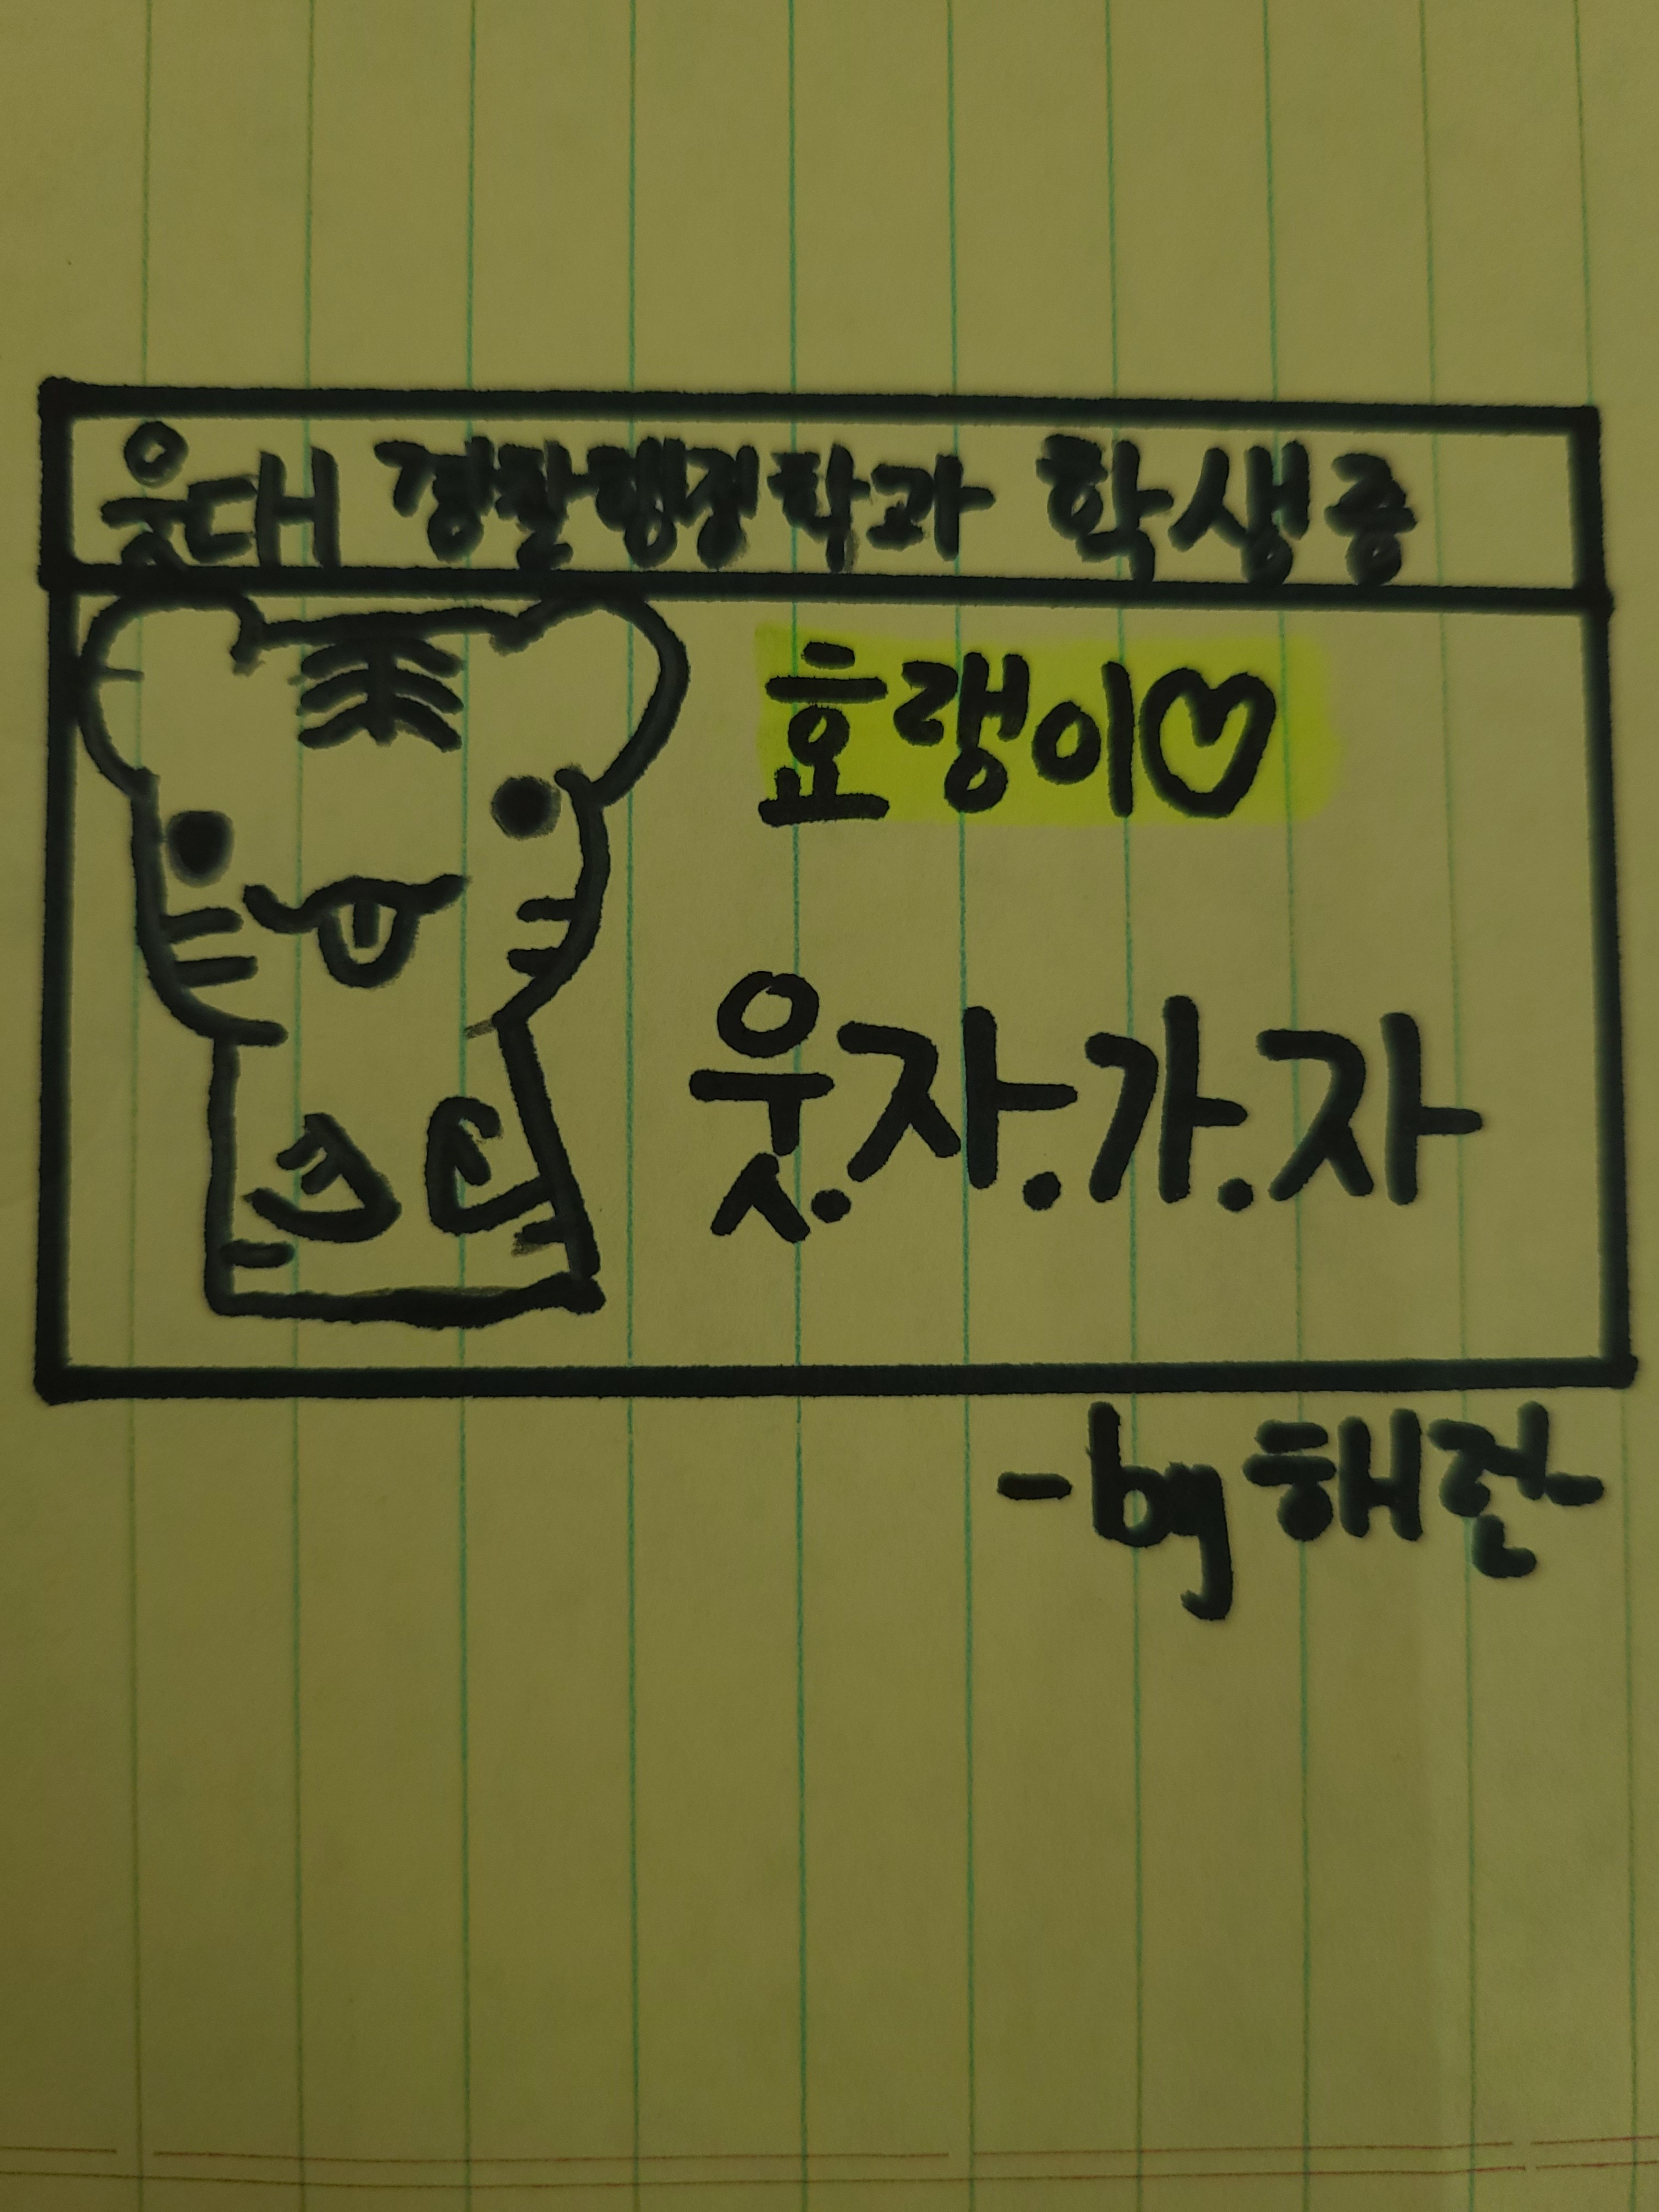 웅대 경찰행정학과 학생증
효랭이♡
웃.자.가.자
-by 해련